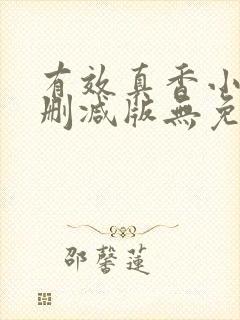 有效真香小
删减版無免
邵馨蓮